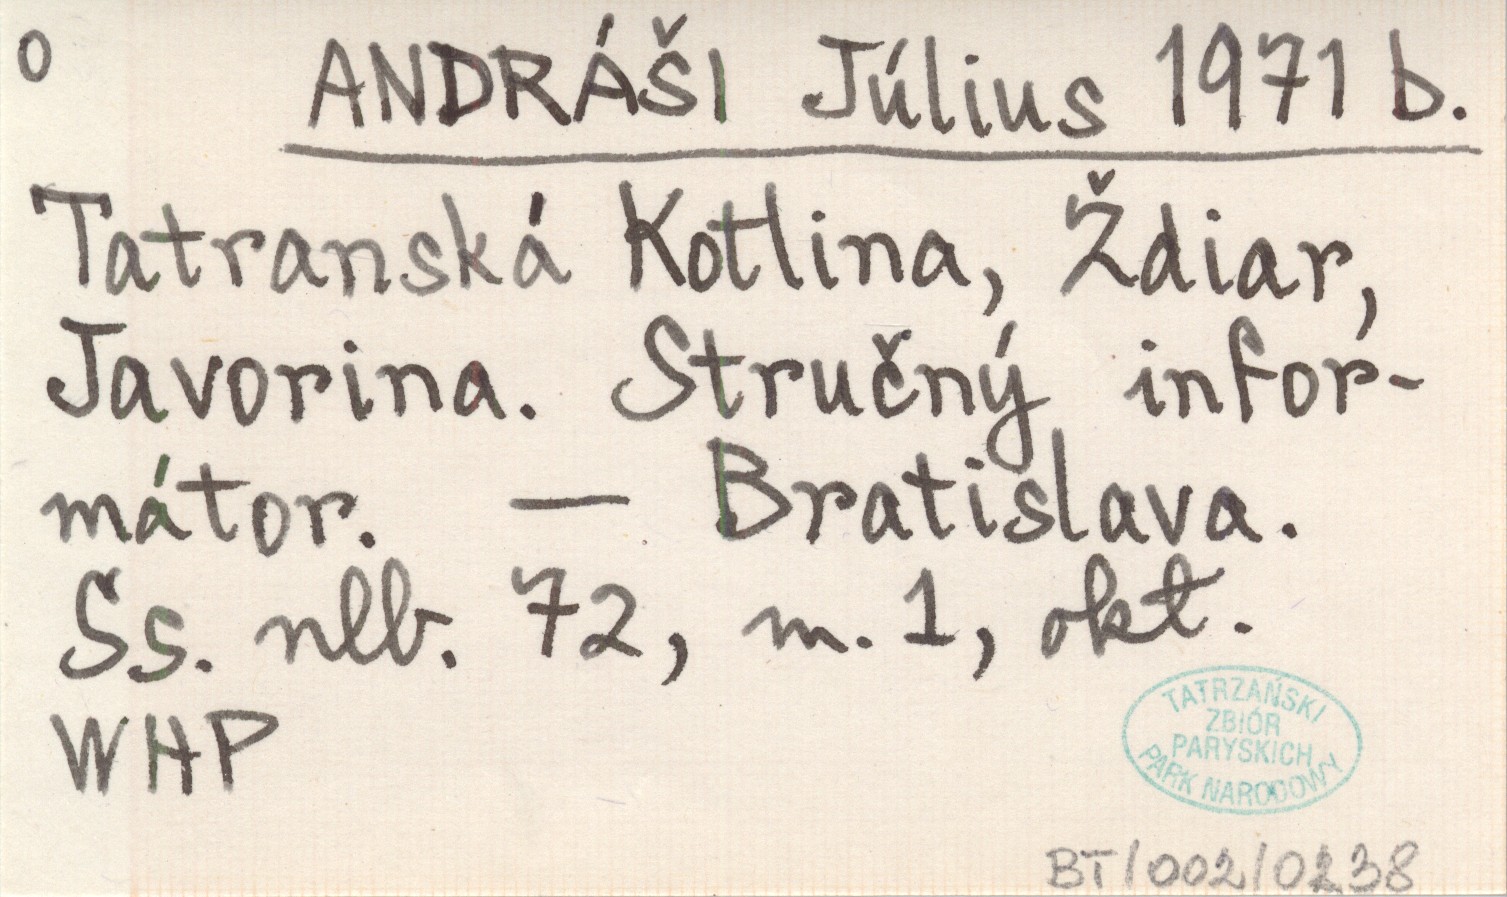 o ANDRÁŠI Július 1971 b.
Tatranská Kotlina, Ždiar,
Javorina. Stručný infor-
mátor. — Bratislava.
Ss. nlb. 72, m. 1, okt.
WHP
TATRZAŃSKI
ZBIÓR
PARYSKICH
PARK NARODOWY
BT/002/0238